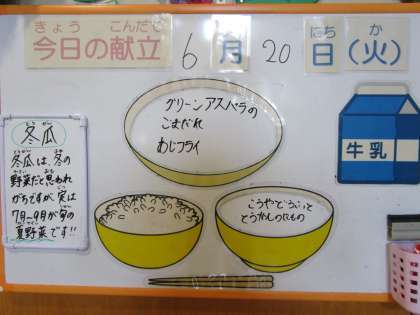 きょう こんだて
今日の献立 6月20日(火)
にち か
グリーンアスパラの
ごまだれ
あじフライ
牛乳
とうがん
冬瓜
とうがん ふゆ
冬瓜は、冬の
やさい おも
野菜だと思われ
じつ
がちですが、実は
7月〜9月が旬の
夏野菜です!!
とうがんのにもの